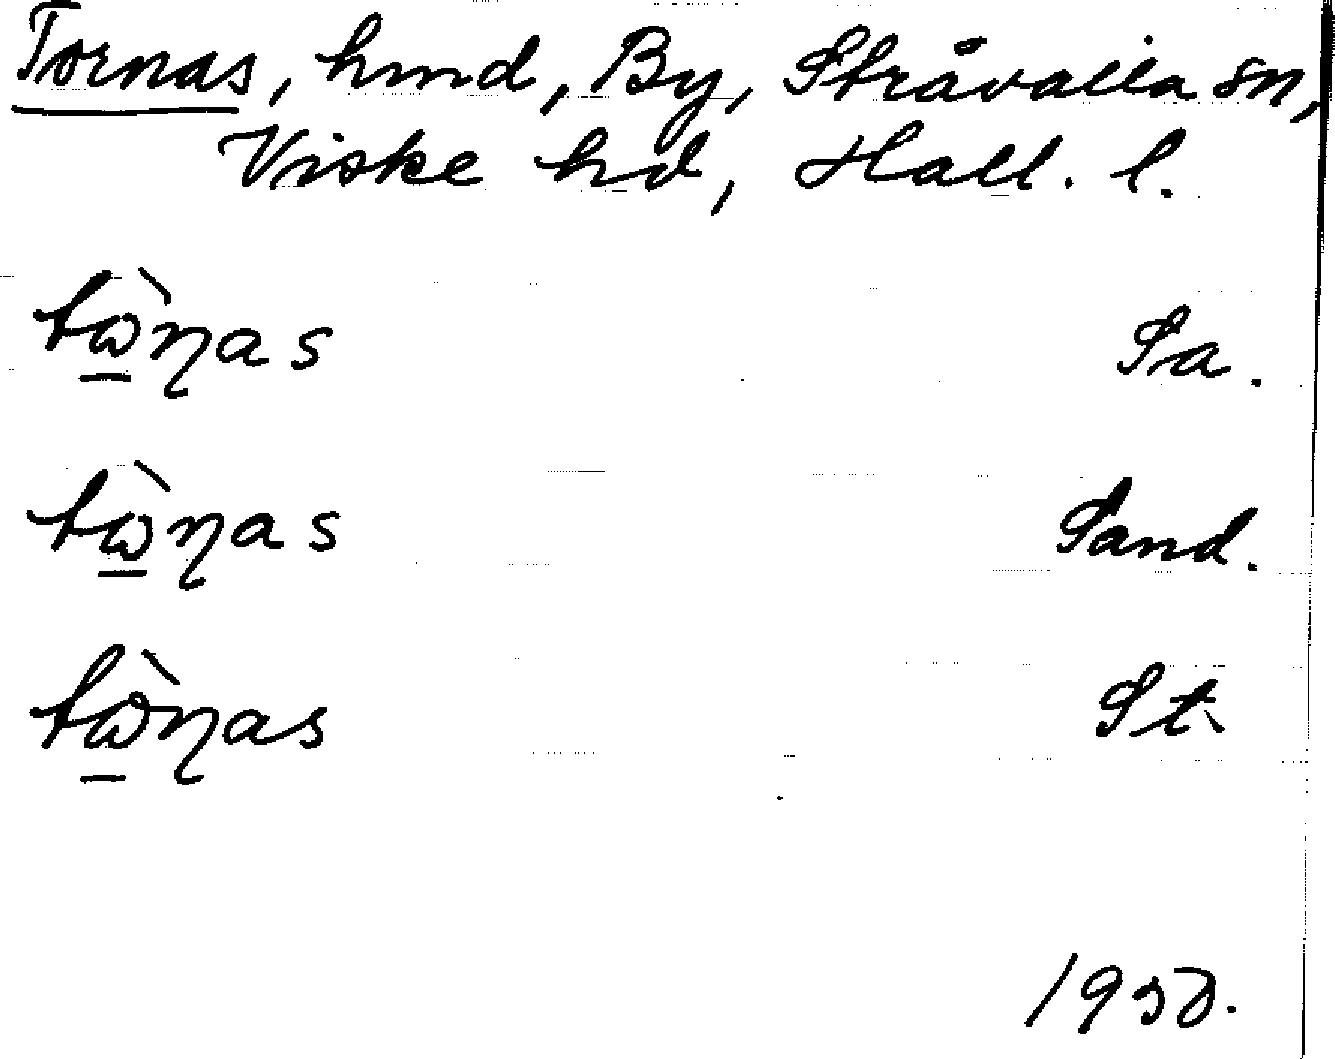 Tornas, hmd, By, Stråvalla sn,
Viske hd, Hall. l.
tὼ̲ɳas Sa.
tὼ̲ɳas Sand.
tὼ̲ɳas St.